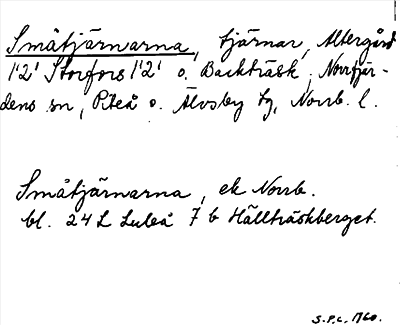 Småtjärnarna, tjärnar, Altergård
1'2' Storfors 1'2' o. Backträsk, Norrfjär-
dens sn, Piteå o. Älvsby tg, Norrb. l.
Småtjärnarna, ek Norrb.
bl. 24 L Luleå 7 b Hällträskberget.
S.P.C. 1960.